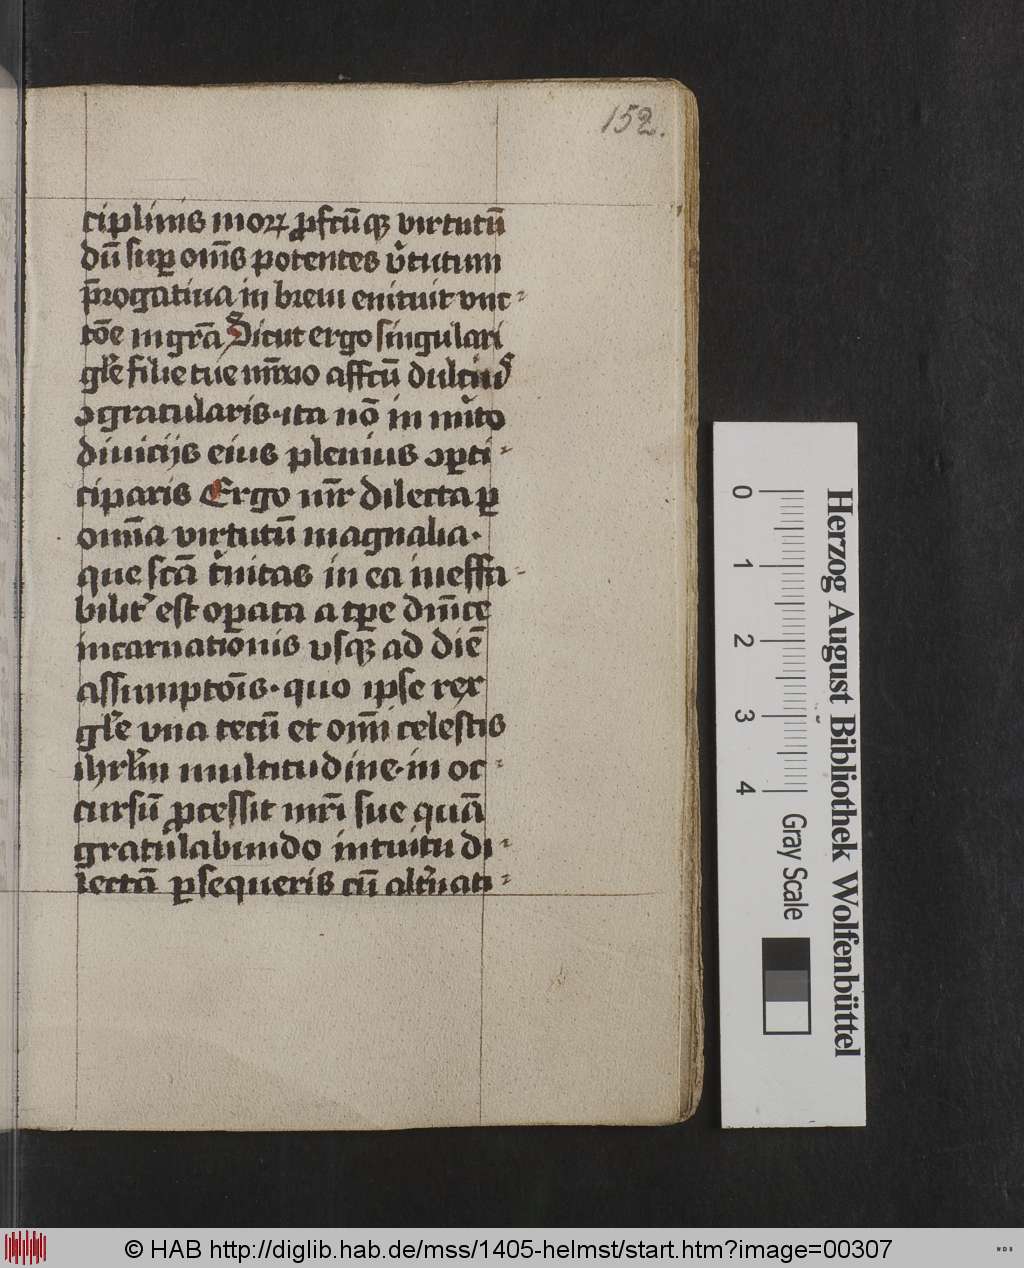 152.
ciplinis moꝝ ꝓfcūqꝫ virtutū
dū suꝑ om̄s potentes v̓tutum
p̄rogatiua in breui enituit vnc⸗
tōe mgr̄a Sicut ergo singulari
gl̓e filie tue affcū
ꝯgratularis · ita nō in
diuicijs eius plenius ꝯꝑti⸗
ciparis Ergo mr̄ dilecta ꝑ
om̄ia virtutū magnalia ·
que scā t̓nitas in ea ineffa⸗
bilit̓ est oꝑata a tꝑe dm̄ce
incarnationis vsqꝫ ad diē
assumptōis · quo ipse rex
gl̓e vna tecū et om̄i celestis
ihrl̓m multitudine · in oc⸗
cursū ꝓcessit mr̄i sue quā
gratulabundo intuitu di⸗
lectā ꝑsequeris cū alt̓nati⸗
Herzog August Bibliothek Wolfenbüttel
0 1 2 3 4 Gray Scale
© HAB http://diglib.hab.de/mss/1405-helmst/start.htm?image=00307